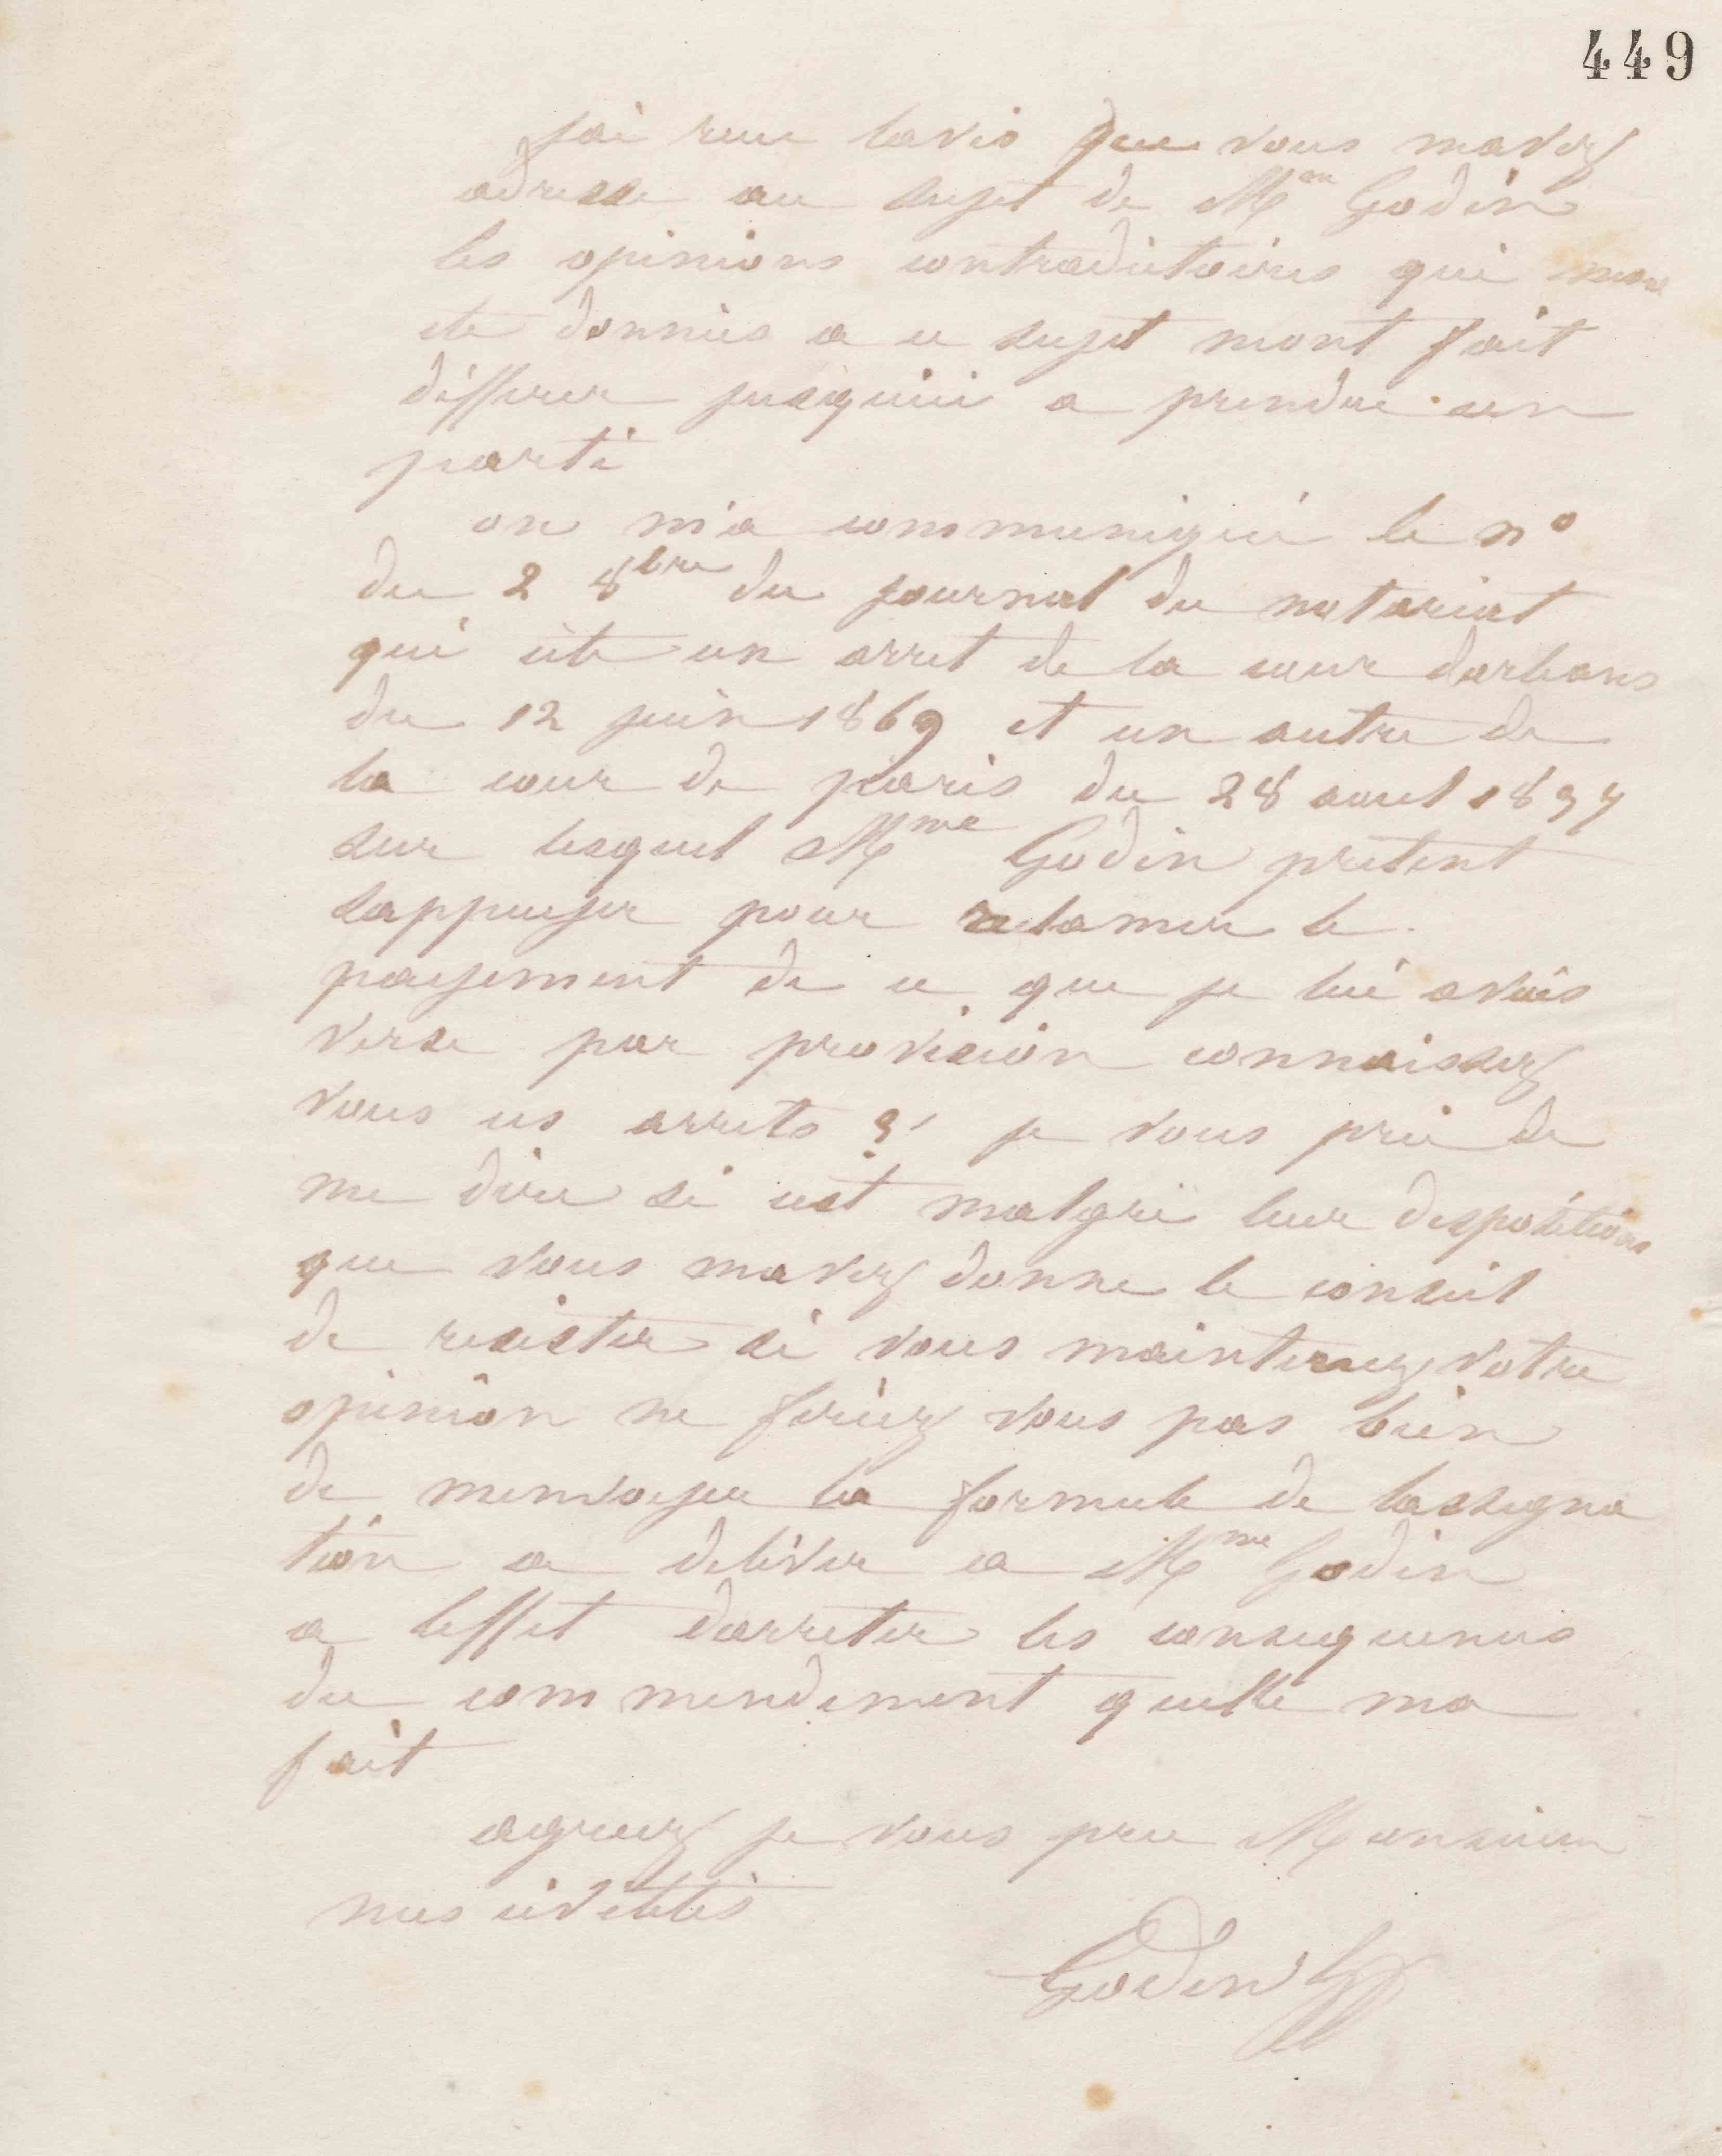 449
jai recu lavis que vous mavez
adresse au sujet de Mme Godin
les opinions contradictoires qui
ete données a ce sujet mont fait
differer jusquici a prendre un
parti
on m'a communiqué le n°
du 2 8bre du journal du notariat
qui cite un arret de la cour dorleans
du 12 juin 1869 et un autre de
la cour de paris du 28 aout
sur lesquel Mme Godin pretent
sappuyer pour reclamer le
payement de ce que je lui avais
verse par provision connaissez
vous ces arrets ? je vous prie de
me dire si cest malgré leur dispositions
que vous mavez donne le conseil
de resister si vous maintenez votre
opinion ne feriez vous pas bien
de menvoyer la formule de lassigna
tion a delivrer a Mme Godin
a leffet darreter les consequences
du commendement quelle ma
fait
agreez je vous prie Monsieur
mes civilités
Godin